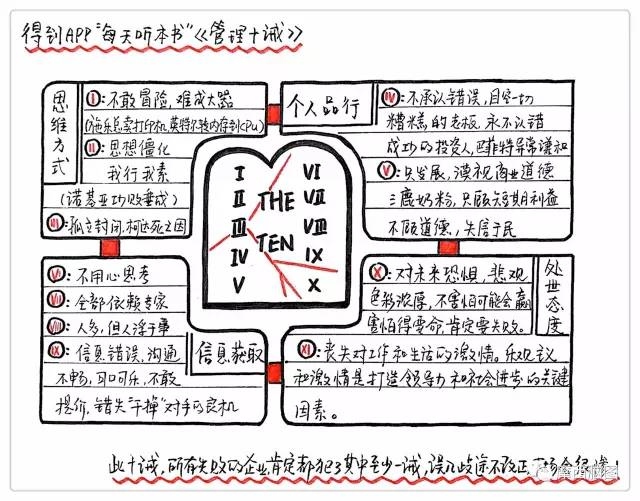 得到APP“每天听本书”《管理十诫》
思维方式
Ⅰ:不敢冒险,难成大器
(施乐总卖打印机,英特尔转内存到CPU)
Ⅱ:思想僵化
我行我素
(诺基亚功败垂成)
Ⅲ:孤立封闭,柯达死之因
个人品行
Ⅳ:不承认错误,目空一切
糟糕的老板,永不认错
成功的投资人,巴菲特异常谦和
Ⅴ:只发展,漠视商业道德
三鹿奶粉,只顾短期利益
不顾道德,失信于民
I
II
III
IV
V
THE
TEN
VI
VII
VIII
IX
X
Ⅵ:不用心思考
Ⅶ:全部依赖专家
Ⅷ:人多,但人浮于事
Ⅸ:信息错误,沟通
不畅,可口可乐,不敢
提价,错失“干掉”对手的良机
信息获取
Ⅹ:对未来恐惧,悲观
色彩浓厚,不害怕可能会赢
害怕得要命,肯定要失败。
处世态度
Ⅺ:丧失对工作和生活的激情。乐观主义
和激情是打造领导力和社会进步的关键
因素。
此十诫,所有失败的企业肯定都犯了其中至少一诫,误入歧途不改正